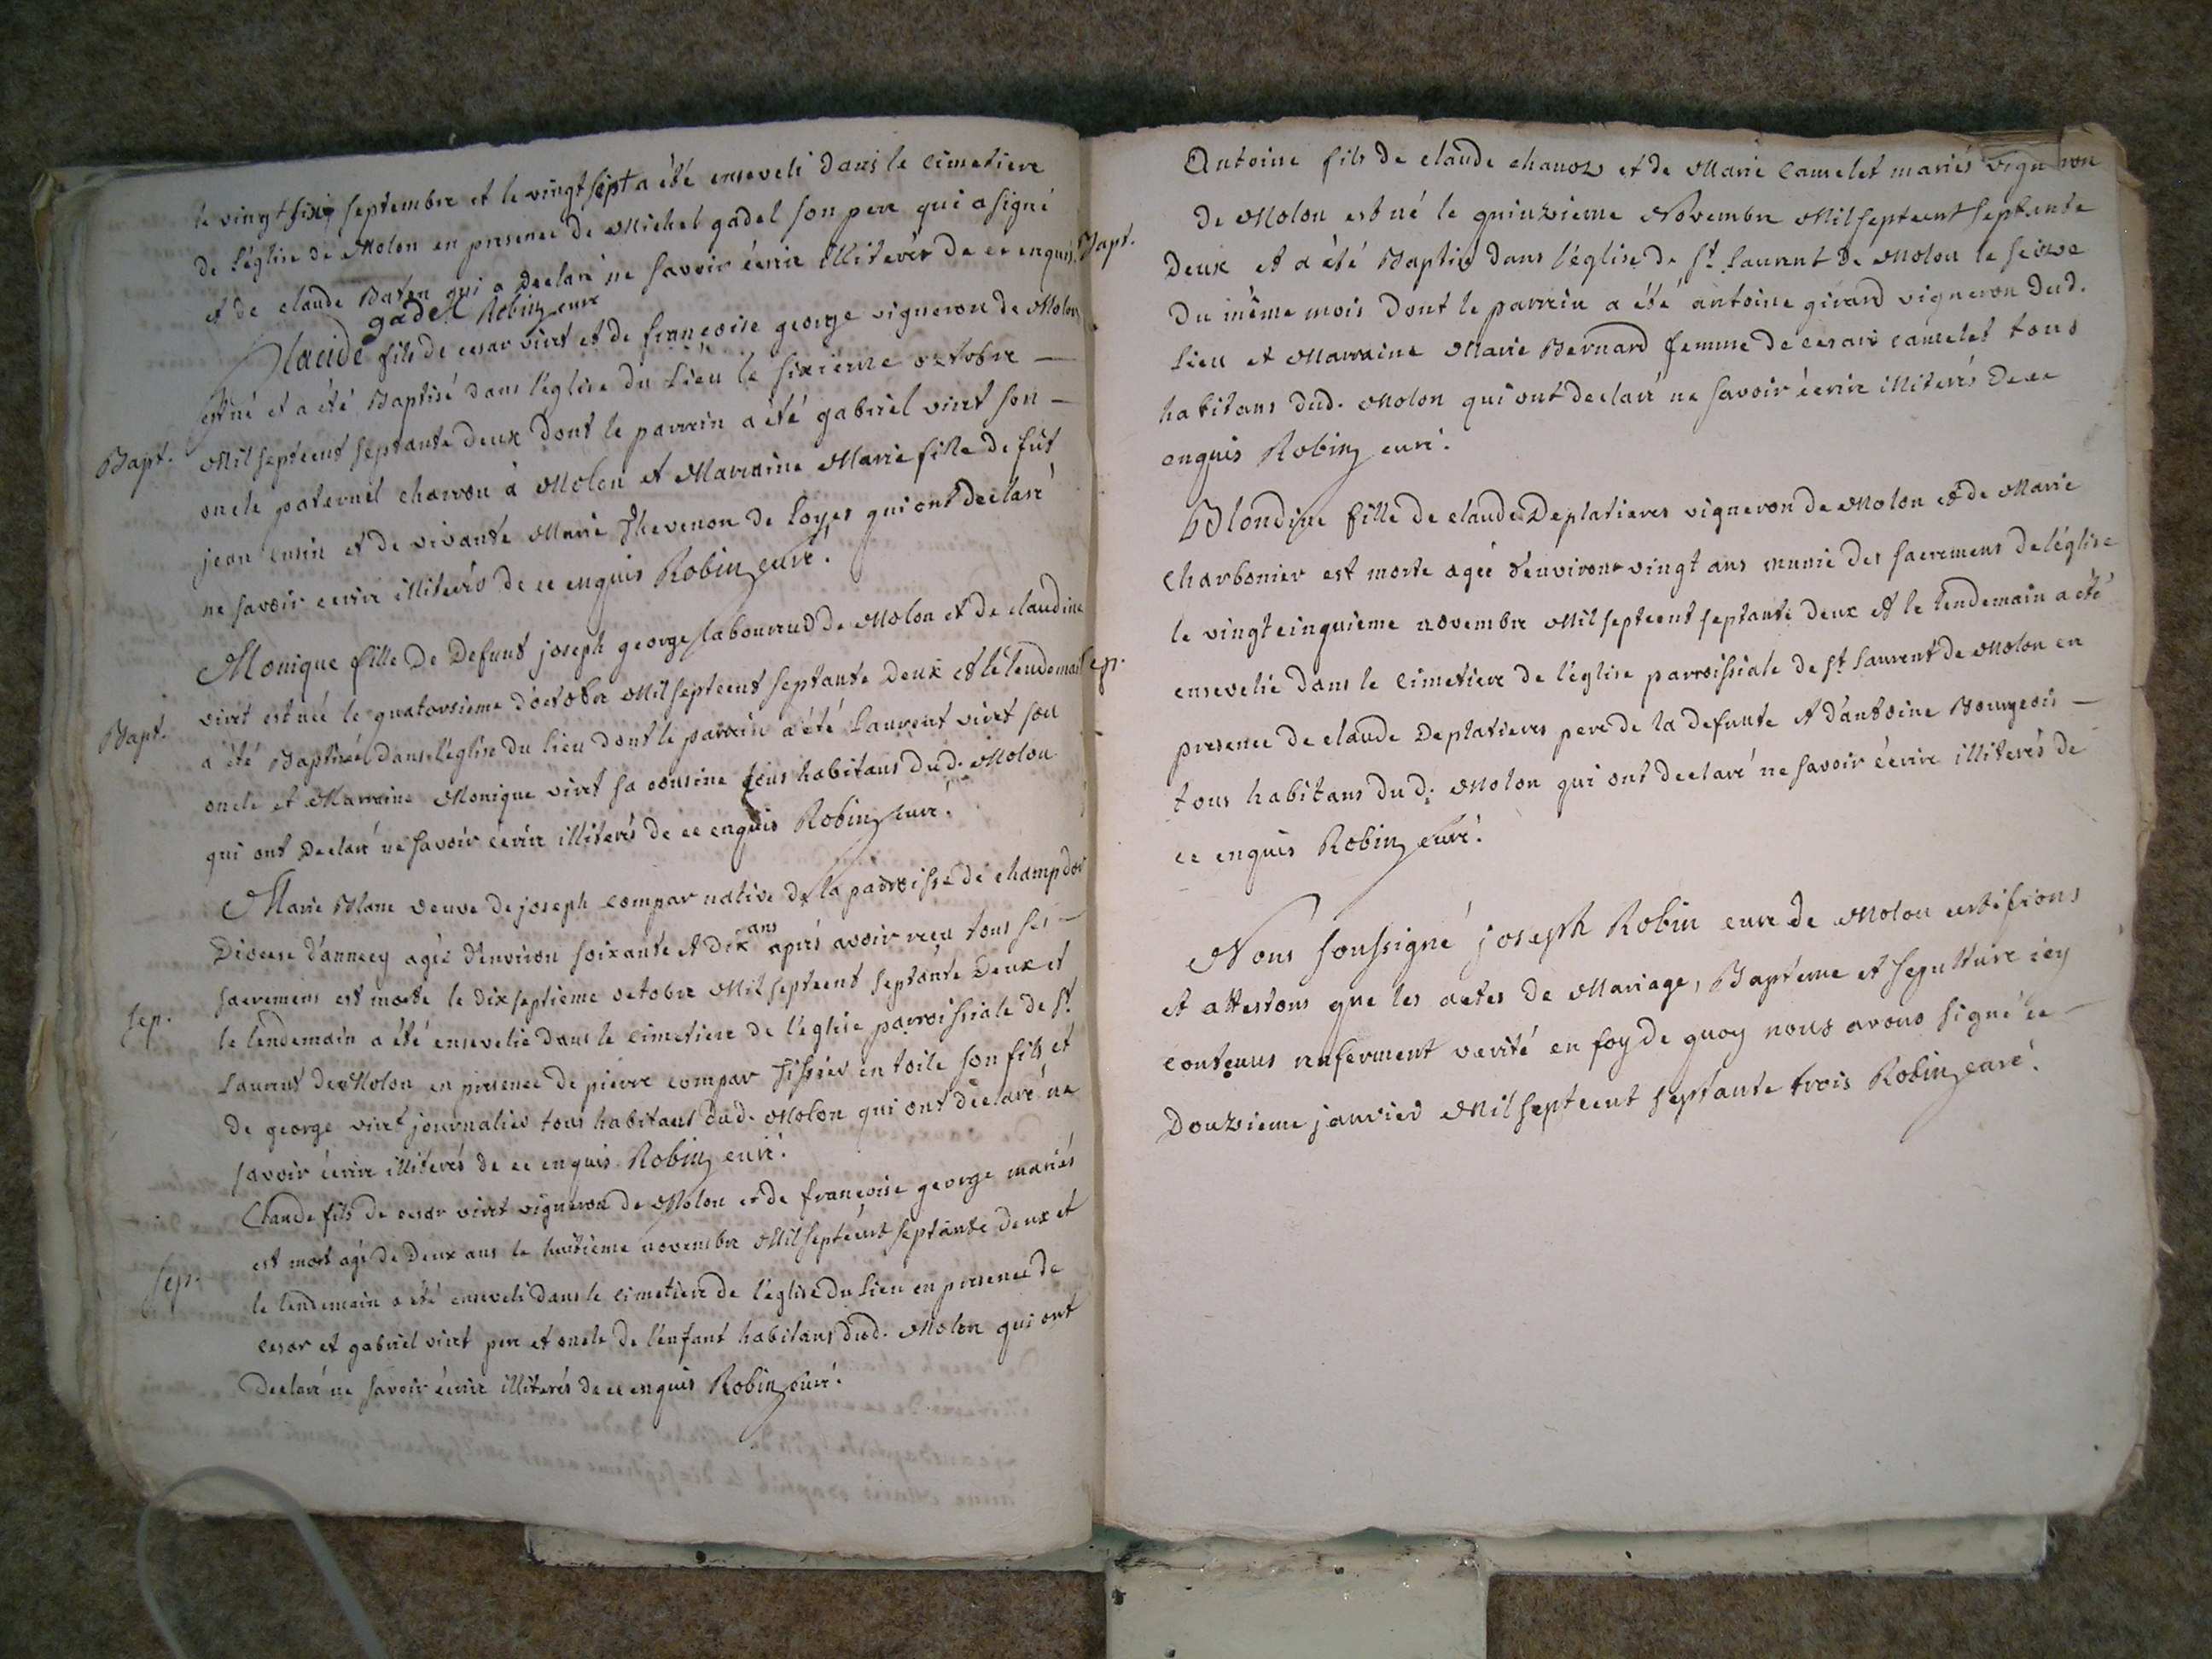 le vingt six septembre et le vingt sept a été enseveli dans le cimetiere
de l'église de Molon en presence de Michel gadel son pere qui a signé
et de claude Baton qui a declaré ne savoir écrire illiterés de ce enquis.
gadel Robin curé
Placide fils de cesar viret et de françoise george vigneron de Molon
est né et a été Baptisé dans l'église du Lieu le sixieme octobre —
Bapt. Mil septcent septante deux dont le parrein a été gabriel viret son —
oncle paternel charron à Molon et Marraine Marie fille de fut
jean et de vivante Marie Thevenon de Loyes qui ont declaré
ne savoir ecrire illiterés de ce enquis Robin curé.
Monique fille De Defunt joseph george laboureud de Molon et de claudine
viret est née le quatorsieme d'octobre Mil septcent septante Deux et le lendemain
Bapt. a été Baptiseé dans l'église du lieu dont le parrein a été Laurent viret son
oncle et Marraine Monique viret sa cousine tous habitans dud. Molon
qui ont Declaré ne savoir écrire illiterés de ce enquis Robin curé.
Marie Blanc veuve de joseph compar native de la parroisse de champdor
Diocese d'annecy agéé d'environ soixante et dix ans aprés avoir reçu tous ses —
sacremens est morte le dix septieme octobre Mil septcent septante Deux et
sep. le lendemain a été ensevelie dans le cimetiere de l'église parroissiale de St.
Laurent de Molon en presence de pierre compar Tissier en toile son fils et
de george viret journalier tous habitans dud. Molon qui ont déclaré ne
savoir écrire illiterés de ce enquis Robin curé.
Claude fils de cesar viret vigneron de Molon et de françoise george mariés
est mort agé de Deux ans le huitieme novembre Mil septcent septante deux et
sep. le lendemain a été enseveli dans le cimetiere de l'église du Lieu en presence de
cesar et gabriel viret pere et oncle de l'enfant habitans dud. Molon qui ont
Declaré ne savoir écrire illiterés de ce enquis Robin curé.
Antoine fils de claude chanoz et de Marie Camelet mariés vigneron
de Molon est né le quinzieme Novembre Mil septcent septante
Bapt. Deux et a été Baptisé dans l'église de St. Laurent de Molon le seize
Du même mois dont le parrein a été antoine girard vigneron dud.
Lieu et Marraine Marie Bernard femme de cesair camelet tous
habitans dud. Molon qui ont declaré ne savoir écrire illiterés de ce
enquis Robin curé.
Blondine fille de claude Deplatieres vigneron de Molon et de Marie
Charbonier est morte agéé d'environ vingt ans munie des sacremens de l'église
le vingt cinquieme novembre Mil septcent septante deux et le lendemain a été
sep. ensevelie dans le cimetiere de l'église parroissiale de St. Laurent de Molon en
presence de claude Deplatieres pere de la defunte et d'antoine Bourgeois —
tous habitans dud. Molon qui ont declaré ne savoir écrire illiterés de
ce enquis Robin curé.
Nous soussigné joseph Robin curé de Molon certifions
et attestons que les actes de Mariage, Bapteme et sepulture icy
contenus renferment verité en foy de quoy nous avons signé ce —
Douzieme janvier Mil septcent septante trois Robin curé.